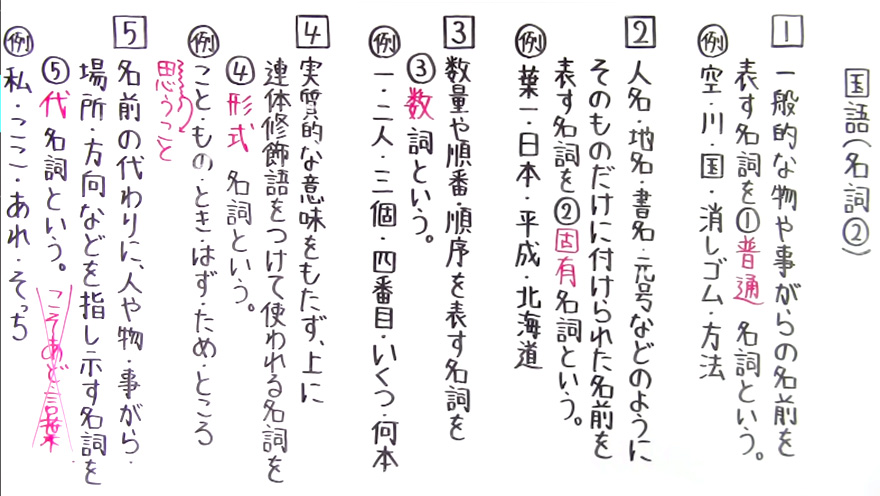 国語(名詞②)
1 一般的な物や事がらの名前を
表す名詞を①普通 名詞という。
例 空・川・国・消しゴム・方法
2 人名・地名・書名・元号などのように
そのものだけに付けられた名前を
表す名詞を②固有名詞という。
例 葉一・日本・平成・北海道
3 数量や順番・順序を表す名詞を
③数 詞という。
例 一・二人・三個・四番目・いくつ・何本
4 実質的な意味をもたず、上に
連体修飾語をつけて使われる名詞を
④形式 名詞という。
例 こと・もの・とき・はず・ため・ところ
思うこと
5 名前の代わりに、人や物・事がら・
場所・方向などを指し示す名詞を
⑤代 名詞という。 こそあど言葉
例 私・ここ・あれ・そっち